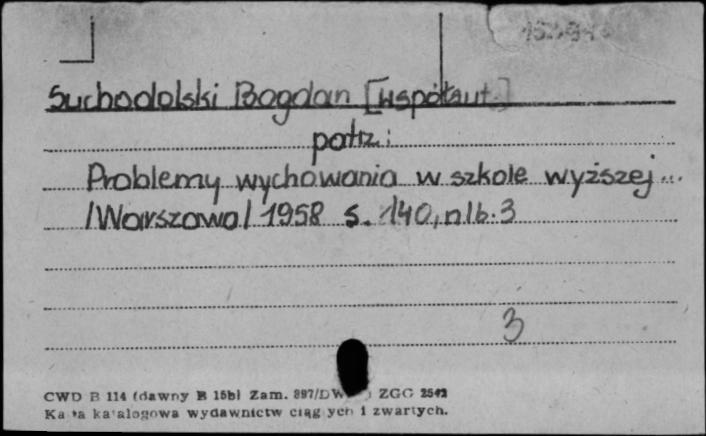 Suchodolski Bogdan [współaut.]
patrz:
Problemy wychowania w szkole wyższej...
/Warszawa/ 1958 s. 140, nlb. 3
3
CWD B 114 (dawny B 15b) Zam. 897/DW ZGG 2542
Karta katalogowa wydawnictw ciągłych i zwartych.